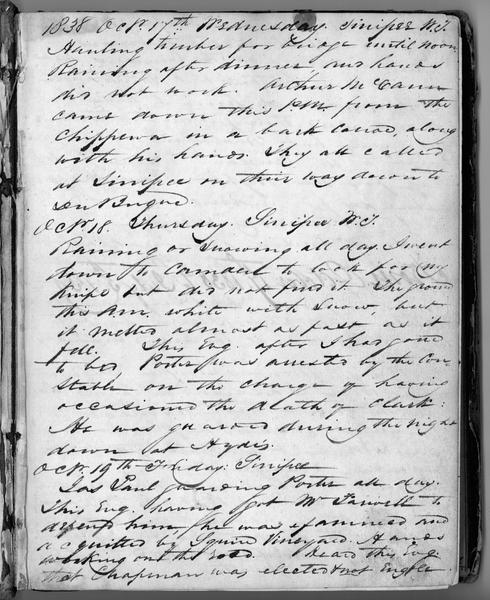 1838 Oct. 17th Wednesday. Sinipee W.T.
Hauling timber for  until noon
Raining after dinner, and hands
did not work. Arthur McCann
came down this P.M. from the
Chippewa in a bark canoe, along
with his hands. They all called
at Sinipee on their way down to
Du Buque.
Oct. 18. Thursday. Sinipee W.T.
Raining or Snowing all day. I went
down to Camden to look for my
knife but did not find it. The ground
this A.M. white with Snow, but
it melted almost as fast as it
fell. This Evg. after I had gone
to bed, Porter was arrested by the Con-
stable on the charge of having
occasioned the death of Clark:
He was guarded during the night
down at Hydes.
Oct. 19th Friday. Sinipee
Jas Paul guarding Porter all day.
This Evg. having got Mr Farwell to
defend him he was examined and
acquitted by Squire Vineyard. Hands
working out the road. Heard this Evg.
that Chapman was elected & not Engle